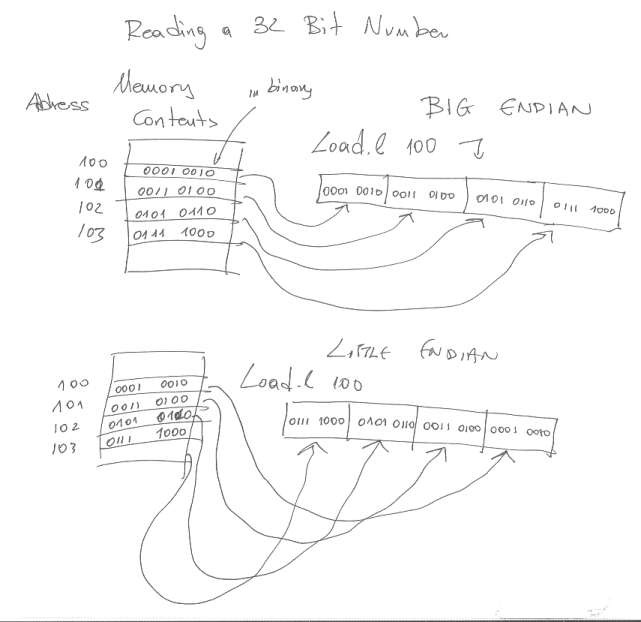 Reading a 32 Bit Number
Adress
Memory
Contents
in binary
BIG ENDIAN
Load.l 100
100 0001 0010
101 0011 0100
102 0101 0110
103 0111 1000
0001 0010 0011 0100 0101 0110 0111 1000
LITTLE ENDIAN
Load.l 100
100 0001 0010
101 0011 0100
102 0101 0110
103 0111 1000
0111 1000 0101 0110 0011 0100 0001 0010